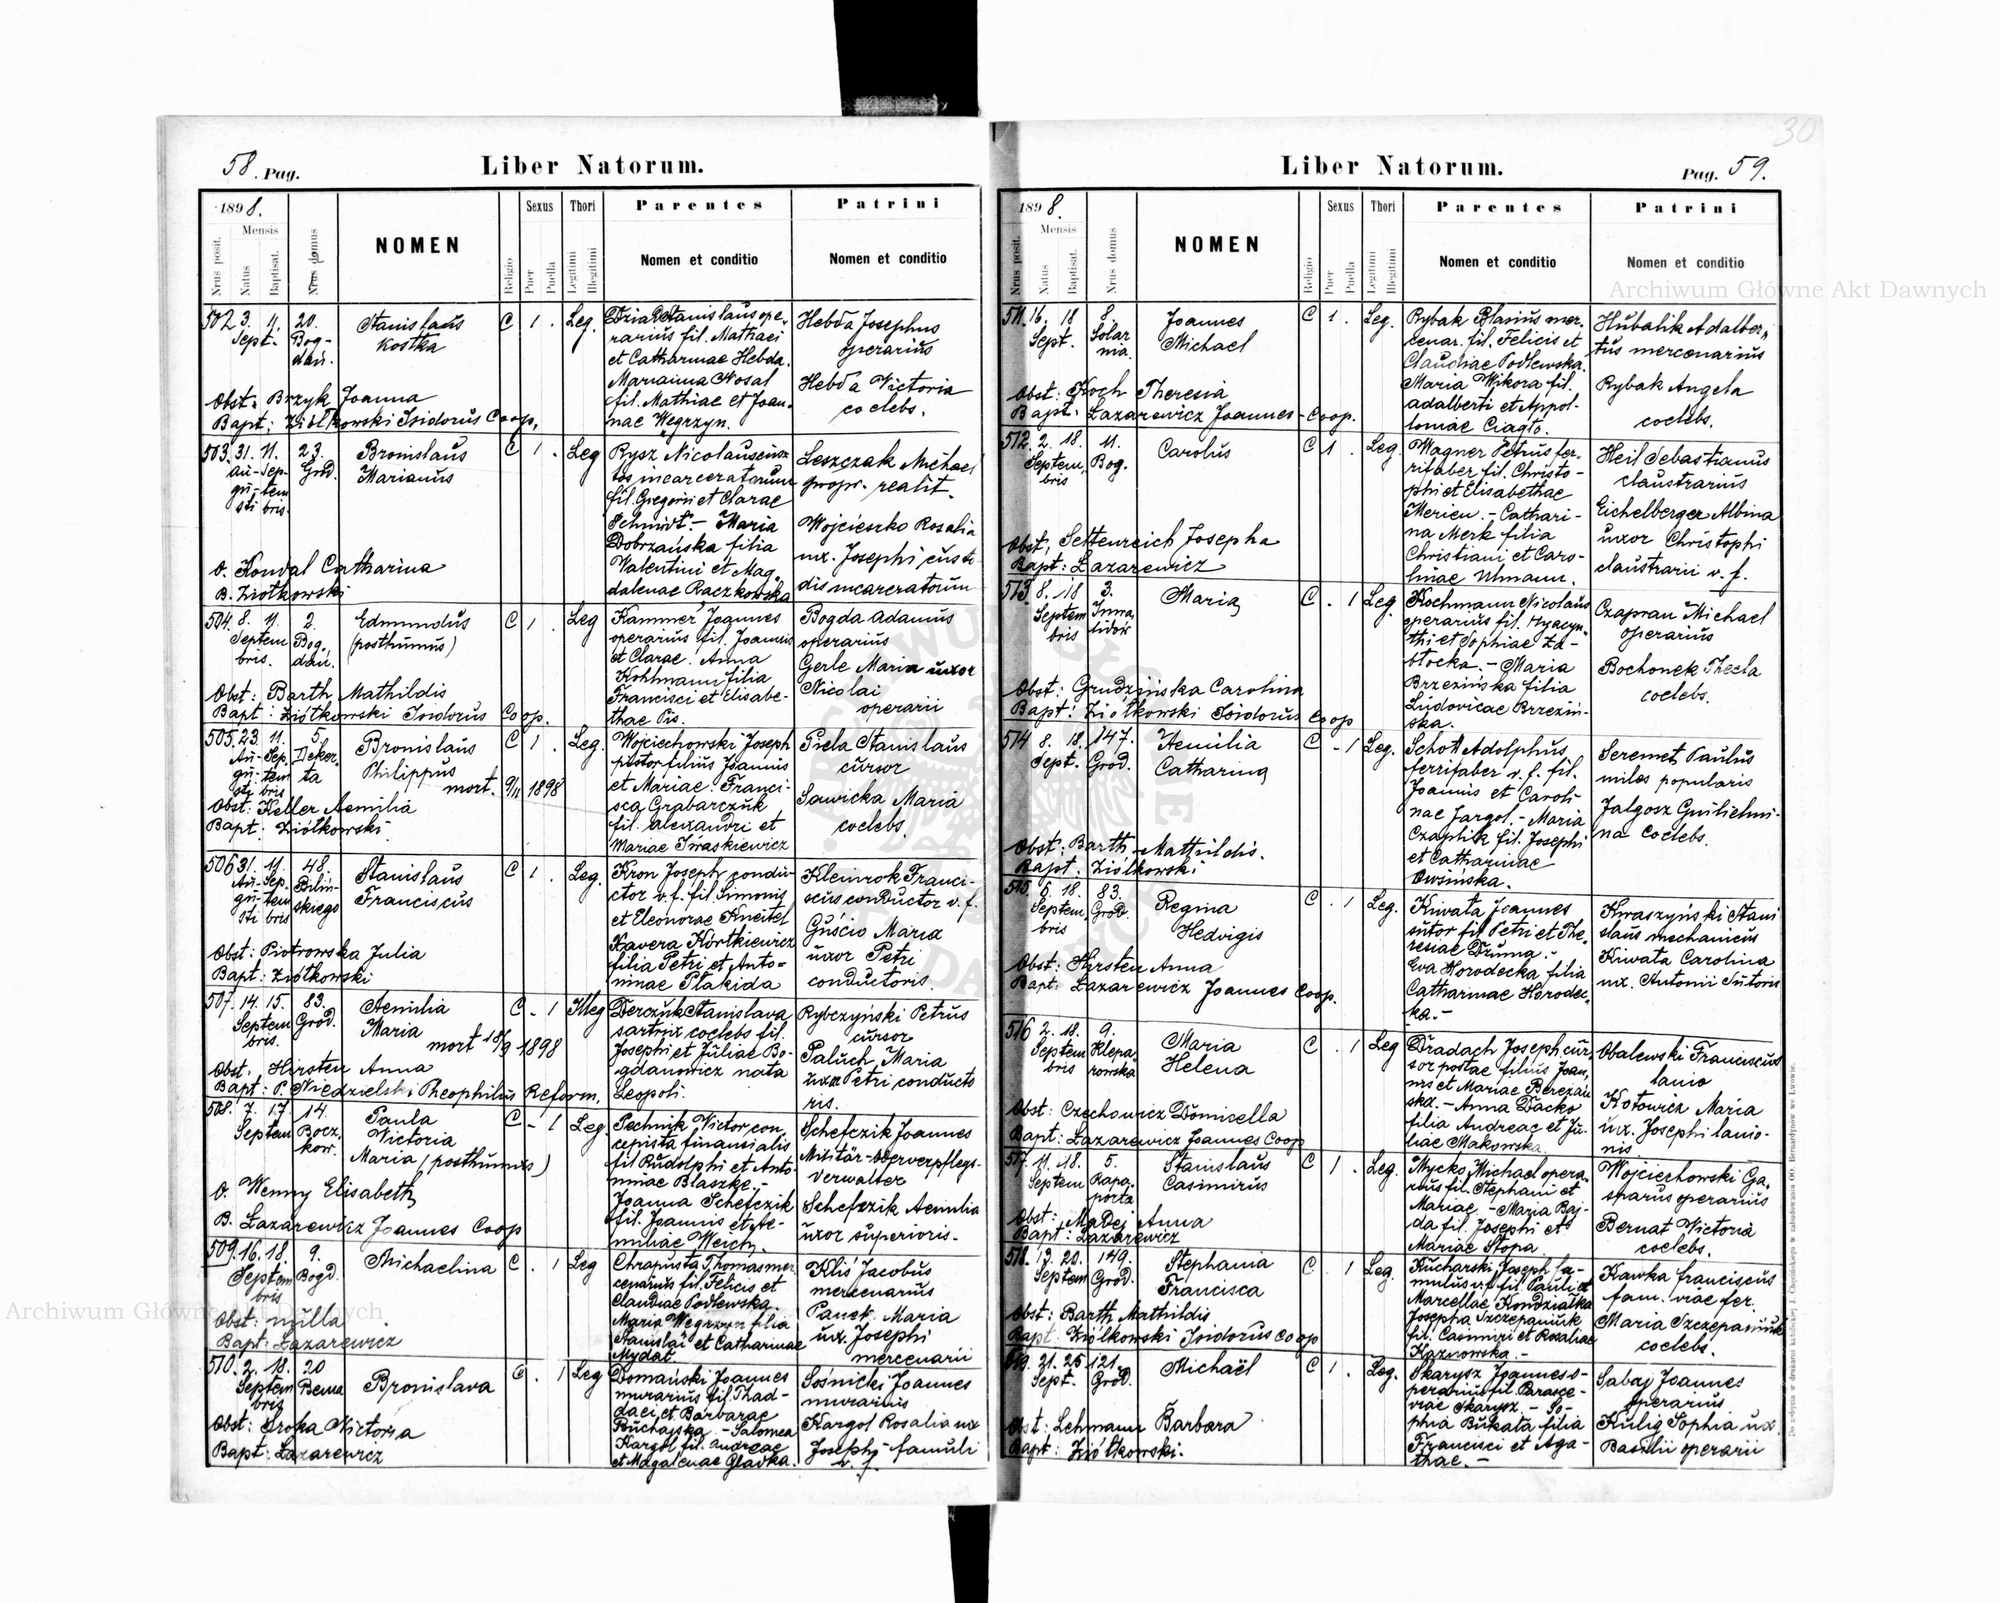 58. Pag.
Liber Natorum.
1898.
Mensis
Nrus posit.
Natus
Baptisat.
Nrus domus
NOMEN
Religio
Sexus
Puer
Puella
Thori
Legitimi
Illegitimi
Parentes
Nomen et conditio
Patrini
Nomen et conditio
502 3. 11. 20. Stanislaus C 1 . Leg.
Sept. Bog- Kostka
dan.
Stanislaus ope-
rarius fil. Mathaei
et Catharinae Hebda.
Marianna Nosal
fil. Mathiae et Joan-
nae Węgrzyn.
Hebda Josephus
operarius
Hebda Victoria
coelebs.
Obst: Brzyk Joanna
Bapt: Ziółkowski Isidorus Coop.
503. 31. 11. 23. Bronislaus C 1 . Leg
Au- Sep- Grod. Marianus
gu- tem
sti bris.
Rysz Nicolaus cus-
tos incarceratorum
fil. Gregorii et Clarae
Schmidt. - Maria
Dobrzańska filia
Valentini et Mag-
dalenae Raczkowska
Leszczak Michael
propr. realit.
Wojcieszko Rosalia
ux. Josephi custo-
dis incarceratorum
O. Kondal Catharina
B. Ziółkowski
504. 8. 11. 2. Edmundus C 1 . Leg
Septem Bog- (posthumus)
bris. dan.
Kammer Joannes
operarius fil. Joannis
et Clarae. Anna
Kohlmann filia
Francisci et Elisabe-
thae Pis.
Bogda Adamus
operarius
Gerle Maria uxor
Nicolai
operarii
Obst: Barth Mathildis
Bapt: Ziółkowski Isidorus Coop.
505. 23. 11. 5. Bronislaus C 1 . Leg.
Au- Sep- Deker- Philippus
gu- tem ta mort. 9/11 1898
sti bris
Wojciechowski Joseph
pistor filius Joannis
et Mariae. Franci-
sca Grabarczuk
fil. Alexandri et
Mariae Iwaskiewicz
Piela Stanislaus
cursor
Sawicka Maria
coelebs.
Obst: Keller Aemilia
Bapt: Ziółkowski
506 31. 11. 48. Stanislaus C 1 . Leg.
Au- Sep- Bilin- Franciscus
gu- tem skiego
sti bris
Kron Joseph condu-
ctor v. f. fil. Simonis
et Eleonorae Kneitel
Xavera Kórtkiewicz
filia Petri et Anto-
ninae Plakida
Kleinrok Franci-
scus conductor v. f.
Guścio Maria
uxor Petri
conductoris.
Obst: Piotrowska Julia
Bapt: Ziółkowski
507. 14. 15. 83. Aemilia C - 1 Illeg
Septem Grod. Maria
bris. mort 18/9 1898
Derczuk Stanislava
sartrix coelebs fil.
Josephi et Juliae Bo-
gdanowicz nata
Leopoli.
Rybczyński Petrus
cursor
Paluch Maria
uxor Petri conducto
ris.
Obst. Hirsten Anna
Bapt: P. Niedzielski Theophilus Reform.
508. 7. 17. 14. Paula C - 1 Leg.
Septem Bocz- Victoria
kow. Maria (posthumus)
Pechnik Victor con-
cepista finansialis
fil. Rudolphi et Anto-
ninae Blaszke.-
Joanna Schefczik
fil. Joannis et Ae-
miliae Weich.
Schefczik Joannes
Militär-Oberverpflegs-
Verwalter
Schefczik Aemilia
uxor superioris.
O. Wenny Elisabeth
B. Łazarewicz Joannes Coop
509. 16. 18. 9. Michaelina C . 1 Leg
Septem Bogd.
bris
Chrapusta Thomas mer
cenarius fil. Felicis et
Claudiae Podlewska.
Maria Węgrzyn filia
Stanislai et Catharinae
Mydat.
Kliś Jacobus
mercenarius
Panek Maria
ux. Josephi
mercenarii
Obst: nulla
Bapt: Łazarewicz
510. 2. 18. 20 Bronislava C . 1 Leg
Septem Bema
bris
Domański Joannes
murarius fil. Thad-
daei et Barbarae
Buchajska. - Salomea
Kargol fil. Andreae
et Magalenae Gladka.
Sośnicki Joannes
murarius
Kargol Rosalia ux
Josephi famuli
v. f.
Obst: Sroka Victoria
Bapt: Łazarewicz
30
Liber Natorum.
Pag. 59.
1898.
Mensis
Nrus posit.
Natus
Baptisat.
Nrus domus
NOMEN
Religio
Sexus
Puer
Puella
Thori
Legitimi
Illegitimi
Parentes
Nomen et conditio
Patrini
Nomen et conditio
511. 16. 18 8. Joannes C 1 . Leg.
Sept. Solar Michael
nia.
Rybak Blasius mer-
cenar. fil. Felicis et
Claudiae Podlewska.
Maria Wikora fil.
Adalberti et Appol-
loniae Ciagło.
Hubalik Adalber-
tus mercenarius
Rybak Angela
coelebs.
Obst: Koch Theresia
Bapt: Łazarewicz Joannes - Coop.
512. 2. 18. 11. Carolus C 1 . Leg.
Septem Bog.
bris
Wagner Petrus fer-
rifaber fil. Christo-
phi et Elisabethae
Merieu. - Cathari-
na Merk filia
Christiani et Caro-
linae Ulmann.
Heil Sebastianus
claustrarius
Eichelberger Albina
uxor Christophi
claustrarii v. f.
Obst. Settenreich Josepha
Bapt: Łazarewicz
513 8. 18 3. Maria C . 1 Leg.
Septem Inwa-
bris lidow
Kochmann Nicolaus
operarius fil. Hyacyn-
thi et Sophiae Za-
błocka. - Maria
Brzezińska filia
Ludovicae Brzeziń-
ska.
Czapran Michael
operarius
Bochonek Thecla
coelebs.
Obst: Grudzińska Carolina
Bapt: Ziółkowski Isidorus Coop
514 8. 18. 147. Aemilia C - 1 Leg.
Sept. Grod. Catharina
Schott Adolphus
ferrifaber v. f. fil.
Joannis et Caroli
nae Jargol. - Maria
Czaplik fil. Josephi
et Catharinae
Owsińska.
Seremet Paulus
miles popularis
Jalgosz Guilielmi-
na coelebs.
Obst: Barth Mathildis.
Bapt. Ziółkowski
515 5. 18. 83. Regina C . 1 Leg.
Septem Grod. Hedvigis
bris
Kiwata Joannes
sutor fil. Petri et The-
resiae Druma. -
Eva Horodecka filia
Catharinae Horodec-
ka. -
Kwaszyński Stani
slaus mechanicus
Kiwata Carolina
ux. Antonii sutoris
Obst: Hirsten Anna
Bapt: Łazarewicz Joannes Coop.
516 2. 18. 9. Maria C . 1 Leg
Septem Klepa- Helena
bris rowska
Dradach Joseph cur-
sor postae filius Joan-
nis et Mariae Berezań
ska. - Anna Dacko
filia Andreae et Ju-
liae Makowska
Obalewski Franciscus
lanio
Kotowicz Maria
ux. Josephi lanio-
nis
Obst: Czechowicz Domicella
Bapt: Łazarewicz Joannes Coop
517. 11. 18. 5. Stanislaus C 1 . Leg.
Septem Rapa- Casimirus
porta
Mycko Michael opera-
rius fil. Stephani et
Mariae - Maria Baj-
da fil. Josephi et
Mariae Stopa.
Wojciechowski Ga-
sparus operarius
Bernat Victoria
coelebs.
Obst: Madej Anna
Bapt: Łazarewicz
518. 17. 20. 149. Stephania C . 1 Leg.
Septem Grod. Francisca
Kucharski Joseph fa-
mulus v. f. fil. Pauli et
Marcellae Kondziałka
Josepha Szczepaniuk
fil. Casimiri et Rosaliae
Kaznowska. -
Kawka Franciscus
fam. viae fer.
Maria Szczepaniuk
coelebs.
Obst: Barth Mathildis
Bapt: Ziółkowski Isidorus Coop
519. 21. 25 121 Michaël C 1 . Leg.
Sept. Grod.
Skarysz Joannes o-
perarius fil. Parasce-
viae Skarysz. - So-
phia Bukata filia
Francisci et Aga-
thae. -
Sabaj Joannes
operarius
Kulig Sophia ux.
Basilii operarii
Obst: Lehmann Barbara
Bapt: Ziółkowski.
Archiwum Główne Akt Dawnych
Archiwum Główne Akt Dawnych